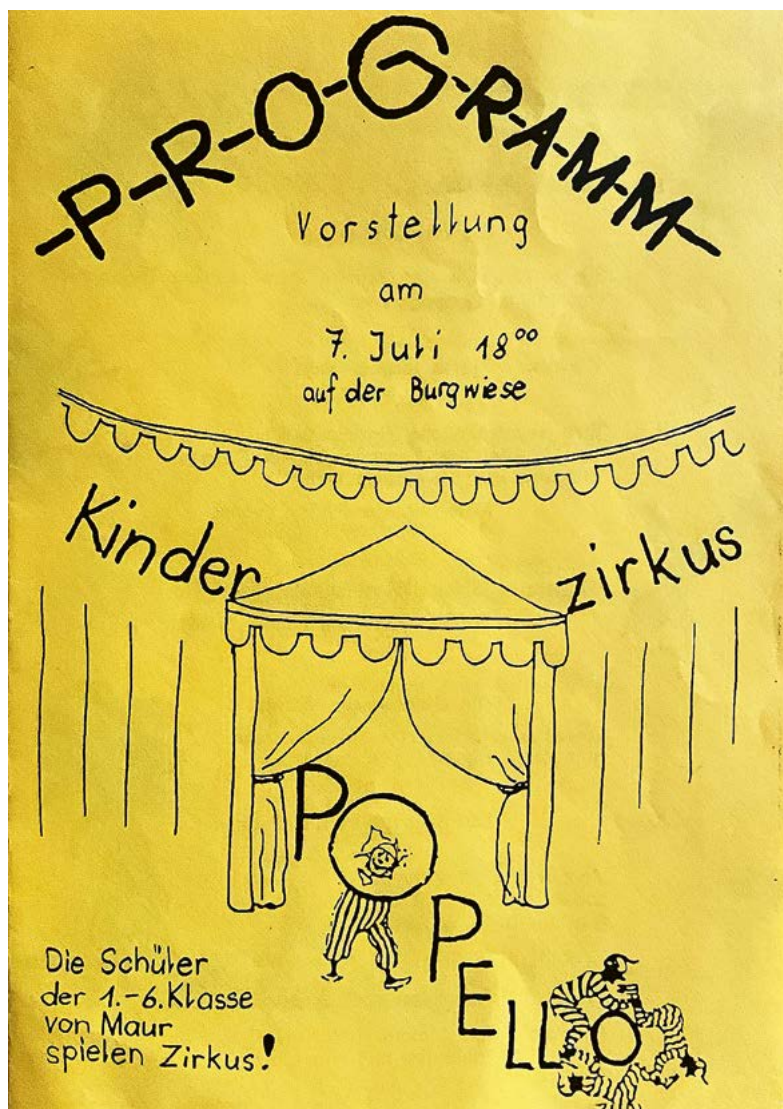 -P-R-O-G-R-A-M-M-
Vorstellung
am
7. Juli 18⁰⁰
auf der Burgwiese
Kinder zirkus
POPELLO
Die Schüler
der 1.-6. Klasse
von Maur
spielen Zirkus!